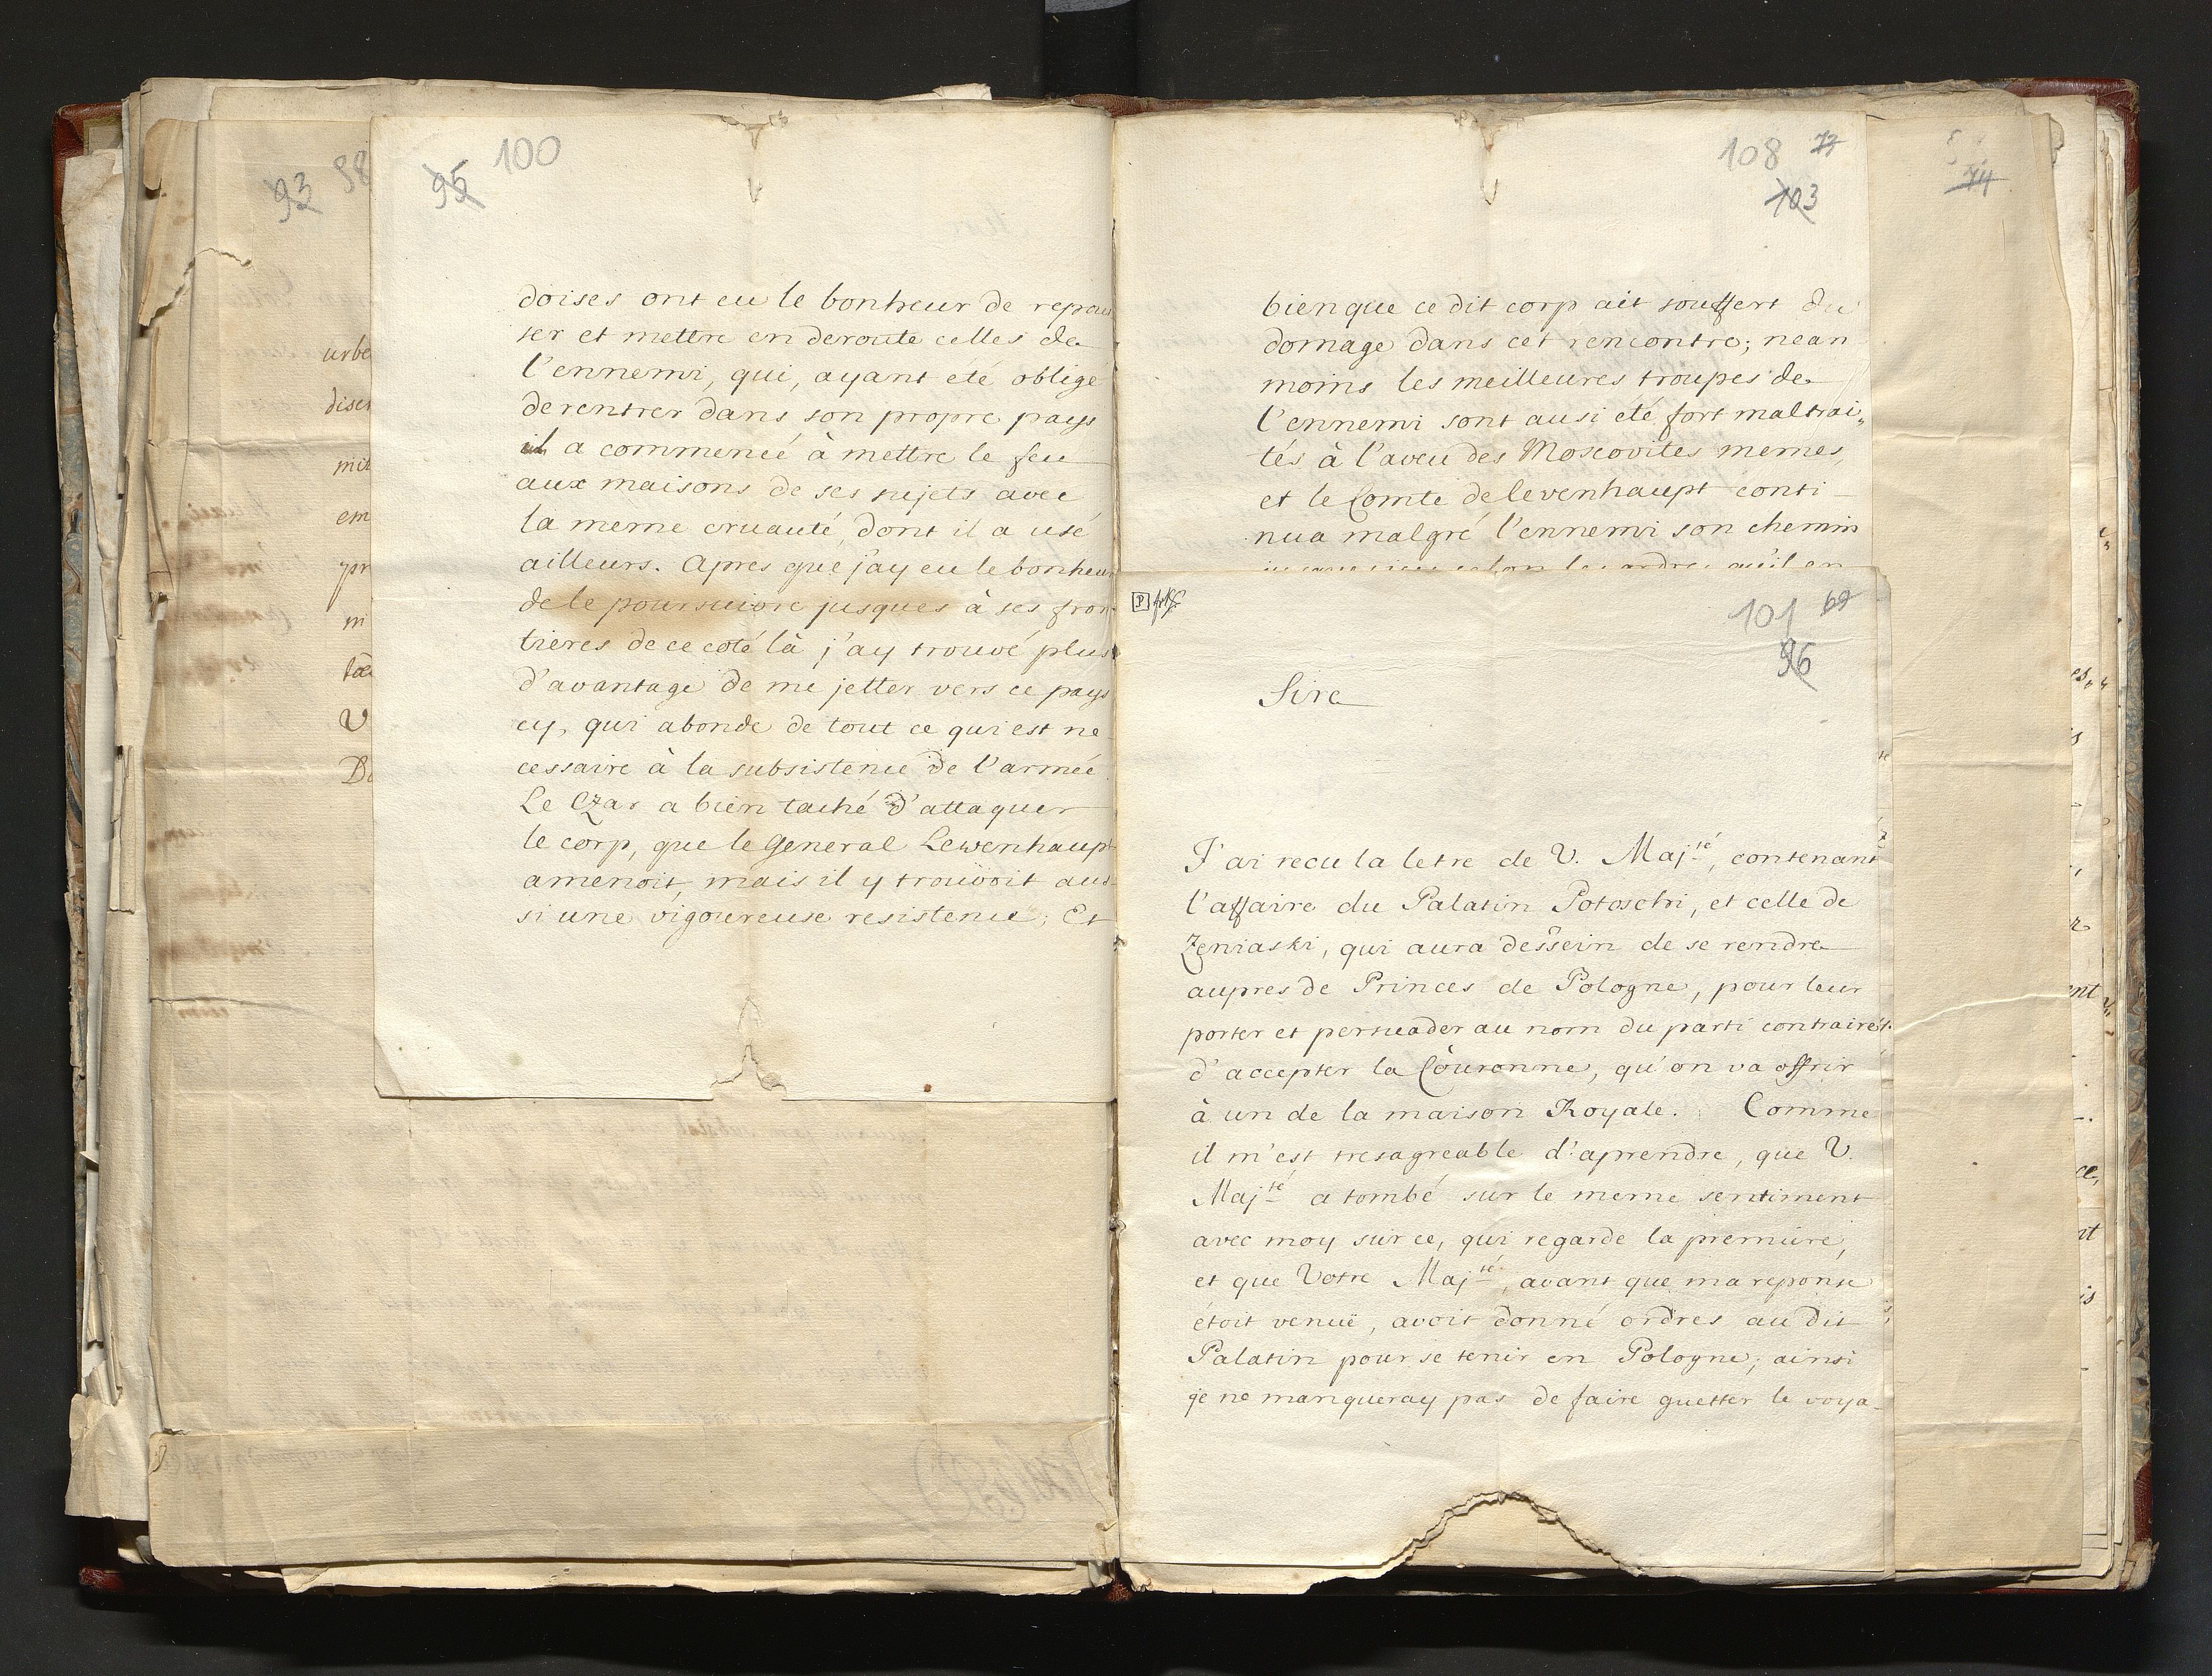 93 98
95 100
doises ont eu le bonheur de repous
ser et mettre en deroute celles de
l'ennemi, qui, ayant eté obligé
de rentrer dans son propre pays
il a commencé à mettre le feu
aux maisons de ses sujets avec
la meme cruauté, dont il a usé
ailleurs. Apres que j'ay eu le bonheur
de le poursuivre jusques à ses fron
tieres de ce coté là j'ay trouvé plus
d'avantage de me jetter vers ce pays
cy, qui abonde de tout ce qui est ne
cessaire à la subsistence de l'armée
Le Czar a bien taché d'attaquer
le corp, que le General Lewenhaupt
amenoit, mais il y trouvoit aus-
si une vigoureuse resistence; Et
urbe
discr
mit
em
ypr
m
V
108 77
103
bien que ce dit corp ait souffert du
domage dans cet rencontre; nean
moins les meilleures troupes de
l'ennemi sont ausi été fort maltrai„
tés à l'aveu des Moscovites memes,
et le Comte de levenhaupt conti-
nua malgré l'ennemi son chemin
74
101 69
96
Sire
J'ai recu la letre de V. Maj.té, contenant
l'affaire du Palatin Potoschi, et celle de
Zeniaski, qui aura dessein de se rendre
aupres de Princes de Pologne, pour leur
porter et persuader au nom du parti contraire
d'accepter la Couronne, qu'on va offrir
à un de la maison Royale. Comme
il m'est tresagreable d'aprendre, que V.
Maj.té a tombé sur le meme sentiment
avec moy sur ce, qui regarde la premiere,
et que Votre Maj.té, avant que ma reponse
étoit venuë, avoit donné ordres au dit
Palatin pour se tenir en Pologne; ainsi
je ne manqueray pas de faire guetter le voya-